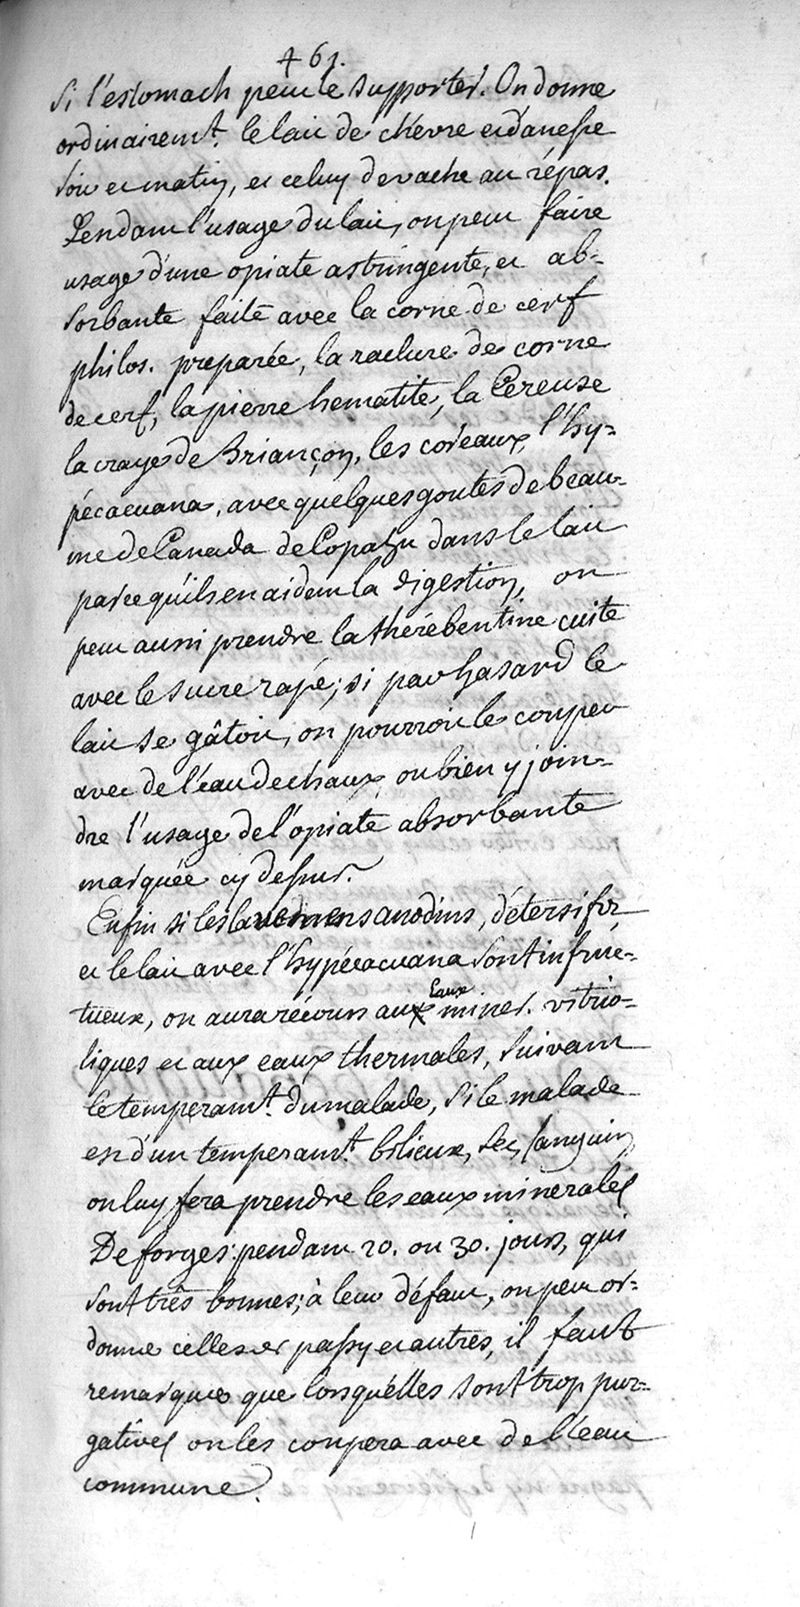 461.
si l'estomach peut le supporter. On donne
ordinairemt. le lait de chévre et d'anesse
soir et matin, et celuy de vache au répas.
Pendant l'usage du lait, on peut faire
usage d'une opiate astringente, et ab=
sorbante faite avec la corne de cerf
philos. preparée, la raclure de corne
de cerf, la pierre hematite, la Ceruse
la craye de Briançon, les coreaux, l'hy=
pécacuana, avec quelques goutes de beau-
me de Canada de Copahu dans le lait
parce qu'ils en aident la digestion, on
peut aussi prendre la thérébentine cuite
avec le sucre rapé; si par hasard le
lait se gâtoit, on pourroit le couper
avec de l'eau de chaux, ou bien y join=
dre l'usage de l'opiate absorbante
marquée cy dessus.
Enfin si les lavemens anodins, détersifs,
et le lait avec l'hypécacuana sont infruc=
tueux, on aura récours aux Eaux miner. vitrio=
liques et aux eaux thermales, suivant
le temperamt. du malade, si le malade
est d'un temperamt. bilieux, sec, sanguin
on luy fera prendre les eaux minerales
De forges pendant 20. ou 30. jours, qui
sont très bonnes; à leur défaut, on peut or=
donner celles de passy et autres, il faut
remarquer que lorsqu'elles sont trop pur=
gatives on les coupera avec de l'eau
commune.